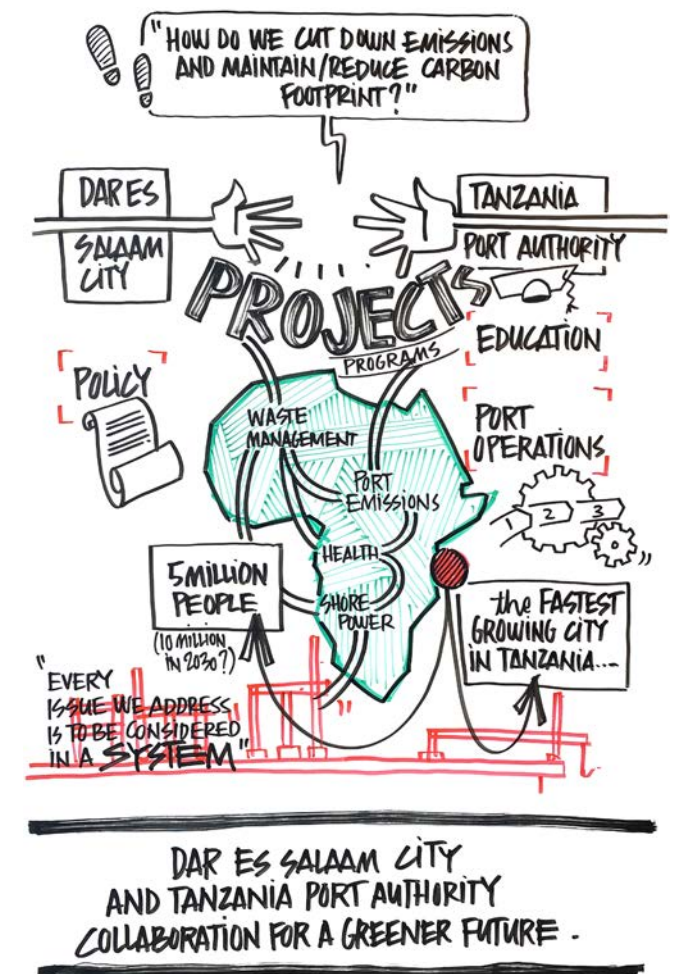 "HOW DO WE CUT DOWN EMISSIONS
AND MAINTAIN/REDUCE CARBON
FOOTPRINT?"
DAR ES
SALAAM
CITY
TANZANIA
PORT AUTHORITY
PROJECTS
PROGRAMS
POLICY
EDUCATION
PORT
OPERATIONS
1 2 3
WASTE
MANAGEMENT
PORT
EMISSIONS
HEALTH
SHORE
POWER
5 MILLION
PEOPLE
(10 MILLION
IN 2030?)
the FASTEST
GROWING CITY
IN TANZANIA...
"EVERY
ISSUE WE ADDRESS
IS TO BE CONSIDERED
IN A SYSTEM"
DAR ES SALAAM CITY
AND TANZANIA PORT AUTHORITY
COLLABORATION FOR A GREENER FUTURE.